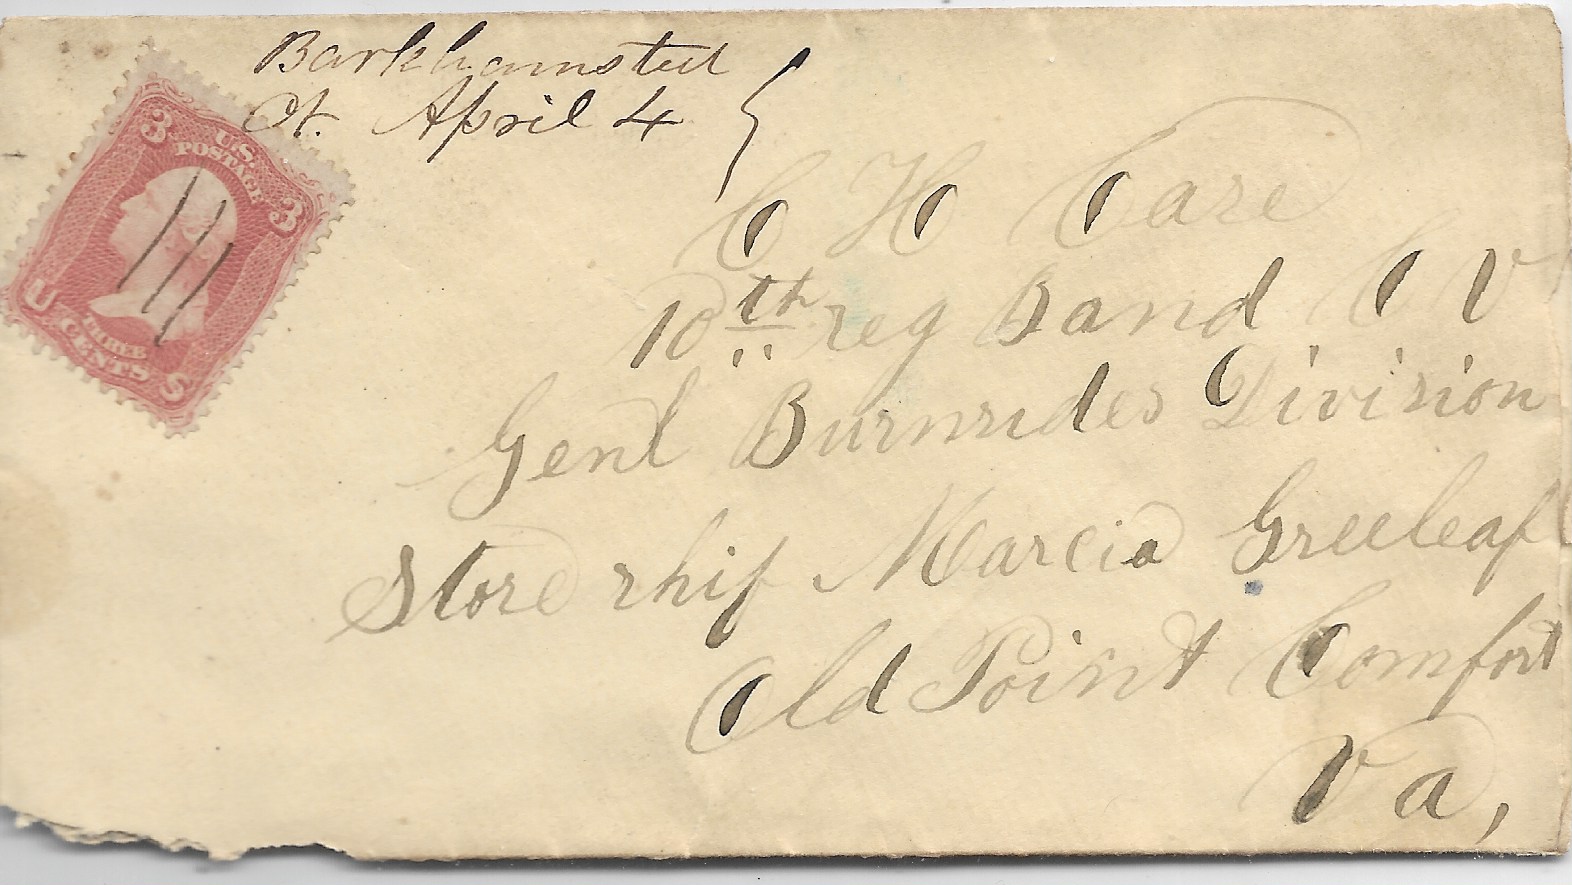 Barkhamsted
Ct. April 4
3
U.S.
POSTAGE
3
U
THREE
CENTS
S
C H Care
10th reg Band C V
Genl Burnsides Division
Store ship Marcia Greeleaf
Old Point Comfort
Va,